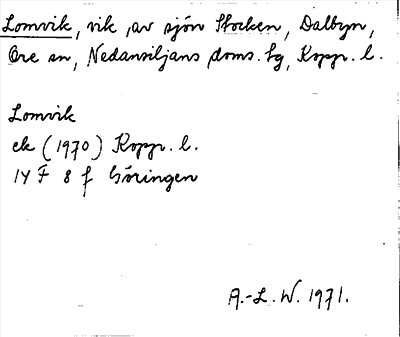 Lomvik, vik, av sjön Stocken, Dalbyn,
Ore sn, Nedansiljans doms. tg, Kopp. l.
Lomvik
ek (1970) Kopp. l.
14 F 8 f Göringen
A.-L. W. 1971.